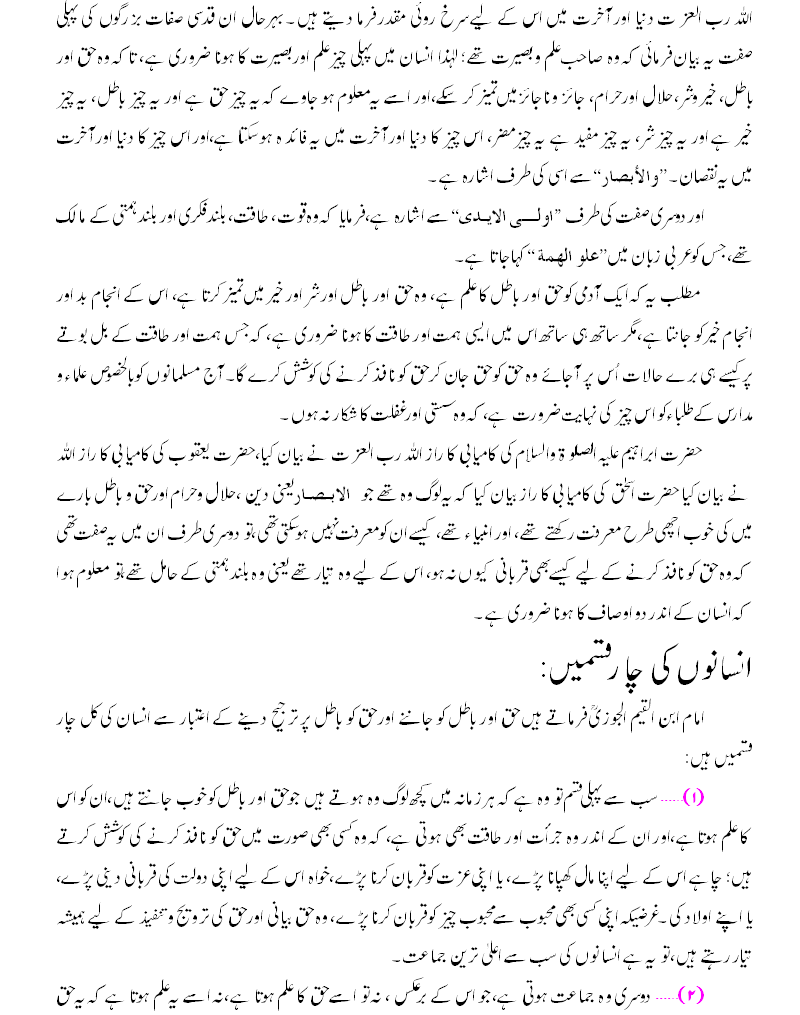 اللہ رب العزت دنیا اور آخرت میں اس کے لیے سرخ روئی مقدر فرما دیتے ہیں۔ بہرحال ان قدسی صفات بزرگوں کی پہلی
صفت یہ بیان فرمائی کہ وہ صاحب علم وبصیرت تھے؛ لہٰذا انسان میں پہلی چیز علم اور بصیرت کا ہونا ضروری ہے، تاکہ وہ حق اور
باطل، خیر وشر، حلال اور حرام، جائز وناجائز میں تمیز کر سکے، اور اسے یہ معلوم ہو جاوے کہ یہ چیز حق ہے اور یہ چیز باطل، یہ چیز
خیر ہے اور یہ چیز شر، یہ چیز مفید ہے یہ چیز مضر، اس چیز کا دنیا اور آخرت میں یہ فائدہ ہو سکتا ہے، اور اس چیز کا دنیا اور آخرت
میں یہ نقصان۔ ”والأبصار“ سے اسی کی طرف اشارہ ہے۔
اور دوسری صفت کی طرف ”اولی الایدی“ سے اشارہ ہے، فرمایا کہ وہ قوت، طاقت، بلند فکری اور بلند ہمتی کے مالک
تھے، جس کو عربی زبان میں ”علو الهمة“ کہا جاتا ہے۔
مطلب یہ کہ ایک آدمی کو حق اور باطل کا علم ہے، وہ حق اور باطل اور شر اور خیر میں تمیز کرتا ہے، اس کے انجام بد اور
انجام خیر کو جانتا ہے، مگر ساتھ ہی ساتھ اس میں ایسی ہمت اور طاقت کا ہونا ضروری ہے، کہ جس ہمت اور طاقت کے بل بوتے
پر کیسے ہی برے حالات اُس پر آجائے وہ حق کو حق جان کر حق کو نافذ کرنے کی کوشش کرے گا۔ آج مسلمانوں کو بالخصوص علماء و
مدارس کے طلباء کو اس چیز کی نہایت ضرورت ہے، کہ وہ سستی اور غفلت کا شکار نہ ہوں۔
حضرت ابراہیم علیہ الصلوۃ والسلام کی کامیابی کا راز اللہ رب العزت نے بیان کیا، حضرت یعقوب کی کامیابی کا راز اللہ
نے بیان کیا حضرت اسحٰق کی کامیابی کا راز بیان کیا کہ یہ لوگ وہ تھے جو الابصار یعنی دین، حلال وحرام اور حق و باطل بارے
میں کی خوب اچھی طرح معرفت رکھتے تھے، اور انبیاء تھے، کیسے ان کو معرفت نہیں ہو سکتی تھی، تو دوسری طرف ان میں یہ صفت تھی
کہ وہ حق کو نافذ کرنے کے لیے کیسے بھی قربانی کیوں نہ ہو، اس کے لیے وہ تیار تھے یعنی وہ بلند ہمتی کے حامل تھے، تو معلوم ہوا
کہ انسان کے اندر دو اوصاف کا ہونا ضروری ہے۔
انسانوں کی چار قسمیں:
امام ابن القیم الجوزیؒ فرماتے ہیں حق اور باطل کو جاننے اور حق کو باطل پر ترجیح دینے کے اعتبار سے انسان کی کل چار
قسمیں ہیں:
(۱)...... سب سے پہلی قسم تو وہ ہے کہ ہر زمانہ میں کچھ لوگ وہ ہوتے ہیں جو حق اور باطل کو خوب جانتے ہیں، ان کو اس
کا علم ہوتا ہے، اور ان کے اندر وہ جرأت اور طاقت بھی ہوتی ہے، کہ وہ کسی بھی صورت میں حق کو نافذ کرنے کی کوشش کرتے
ہیں؛ چاہے اس کے لیے اپنا مال کھپانا پڑے، یا اپنی عزت کو قربان کرنا پڑے، خواہ اس کے لیے اپنی دولت کی قربانی دینی پڑے،
یا اپنے اولاد کی۔ غرضیکہ اپنی کسی بھی محبوب سے محبوب چیز کو قربان کرنا پڑے، وہ حق بیانی اور حق کی ترویج وتنفیذ کے لیے ہمیشہ
تیار رہتے ہیں، تو یہ ہے انسانوں کی سب سے اعلیٰ ترین جماعت۔
(۲)...... دوسری وہ جماعت ہوتی ہے، جو اس کے برعکس، نہ تو اسے حق کا علم ہوتا ہے، نہ اسے یہ علم ہوتا ہے کہ یہ حق